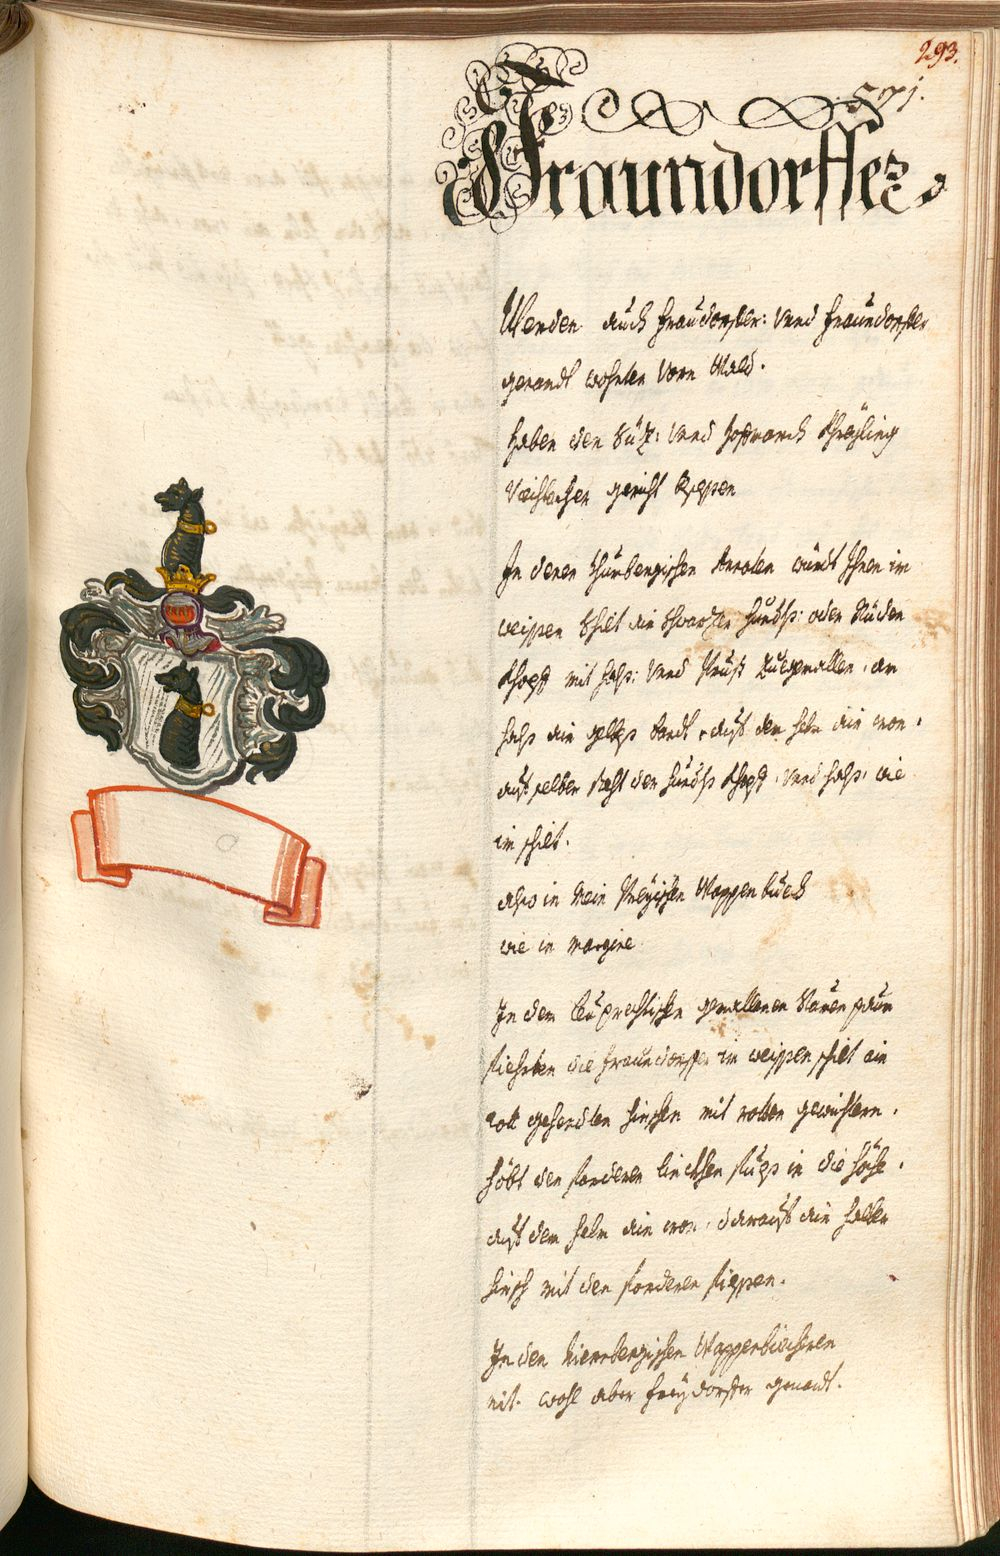 293.
571.
Fraundorffer.
Werden auch Fraudorffer: vnnd Fraundorffer
genandt wohnten vorm Wald.
Haben den Siz: vnnd Hofmarch
gericht
In denen Thurnbergischen würdt Ihnen im
weissen Schilt ein Schwarzer Hundts: oder Rüden
Khopff mit Halß: vnnd Prust zuegemallen, am
Halß ein gelbes bandt, auf dem helm ein cron,
auf selber steht der Hundts Khopff, vnnd Halß, wie
im schilt.
also in mein Preyischen Wappenbuech
wie in margine
In dem gemallenen
fiehrten die Fraundorffer im weissen schilt ein
rott hirschen mit rotten gewichtern,
höbt den forderen linckhen fueß in die höhe,
auf dem helm ein cron, darauf ein halber
hirsch mit den forderen fiessen.
In den Niernbergischen Wappenbiecheren
nit. wohl aber Freydorffer genandt.